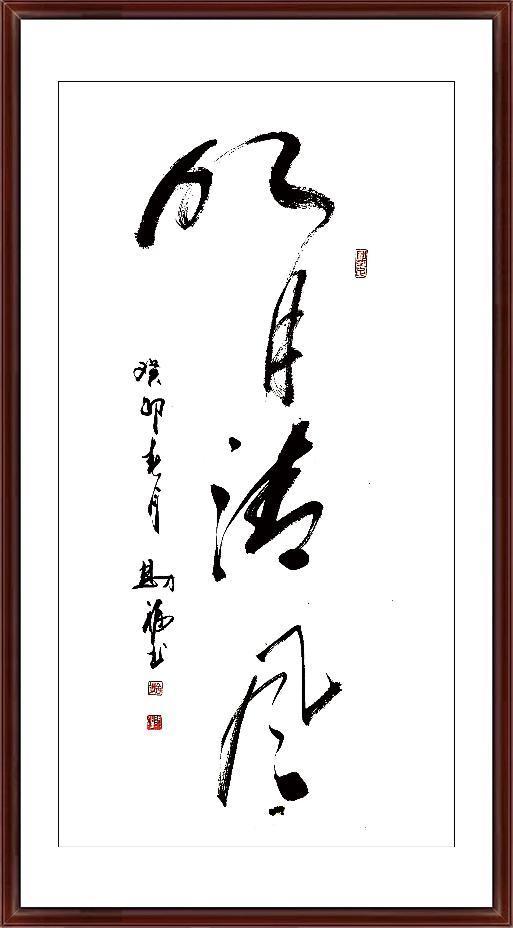 明月清风
癸卯春月勘福书